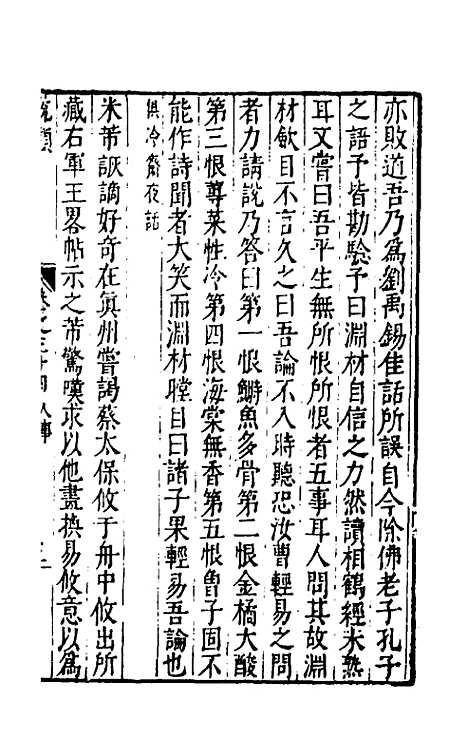 亦敗道吾乃爲劉禹錫佳話所誤自今除佛老子孔子
之語予皆勘驗予曰淵材自信之力然讀相鶴經未熟
耳又嘗曰吾平生無所恨所恨者五事耳人問其故淵
材歛目不言久之曰吾論不入時聽恐汝曹輕易之問
者力請說乃答曰第一恨鰣魚多骨第二恨金橘大酸
第三恨蓴菜性冷第四恨海棠無香第五恨曾子固不
能作詩聞者大笑而淵材瞠目曰諸子果輕易吾論也
俱冷齋夜話
米芾詼譎好奇在眞州嘗謁蔡太保攸于舟中攸出所
藏右軍王畧帖示之芾驚嘆求以他畫換易攸意以爲
卷之三十四 人事